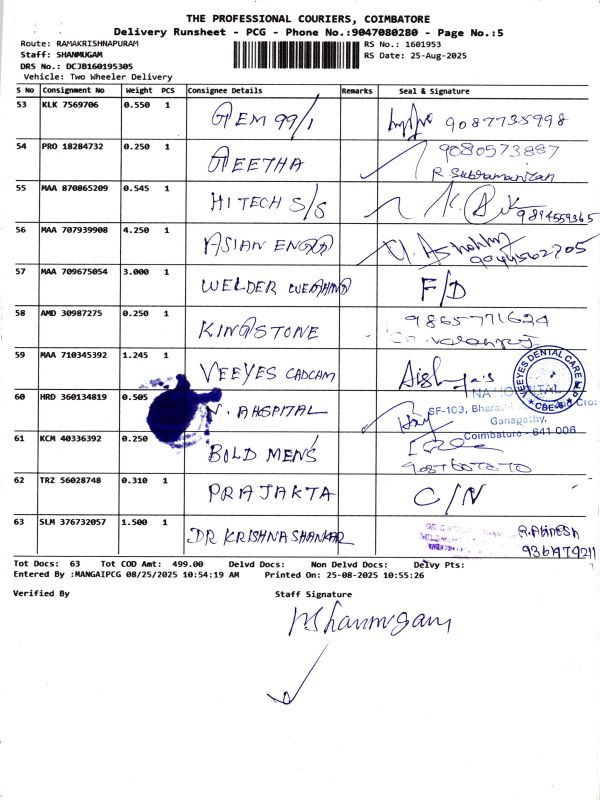 THE PROFESSIONAL COURIERS, COIMBATORE
Delivery Runsheet - PCG - Phone No.:9047080280 - Page No.:5
Route: RAMAKRISHNAPURAM
Staff: SHANMUGAM
DRS No.: DCJB160195305
Vehicle: Two Wheeler Delivery
RS No.: 1601953
RS Date: 25-Aug-2025
S No Consignment No Weight PCS Consignee Details Remarks Seal & Signature
53 KLK 7569706 0.550 1 GEM 99/1 9087735998
54 PRO 18284732 0.250 1 GEETHA 9080573887
R. Subramanian
55 MAA 870865209 0.545 1 HITECH S/S 9894559365
56 MAA 707939908 4.250 1 ASIAN 9044562705
57 MAA 709675054 3.000 1 WELDER F/D
58 AMD 30987275 0.250 1 KINGSTONE 9865771624
59 MAA 710345392 1.245 1 VEEYES CADCAM
VEEYES DENTAL CARE
CBE
60 HRD 360134819 0.505 N. AHSPITAL
SF-103, Bharathi
Ganapathy,
Coimbatore - 641 006
61 KCM 40336392 0.250 BOLD MEN'S
62 TRZ 56028748 0.310 1 PRAJAKTA C/N
63 SLM 376732057 1.500 1 DR KRISHNA SHANKAR
Tot Docs: 63 Tot COD Amt: 499.00 Delvd Docs: Non Delvd Docs: Delvy Pts:
Entered By :MANGAIPCG 08/25/2025 10:54:19 AM Printed On: 25-08-2025 10:55:26
Verified By Staff Signature
Shanmugam